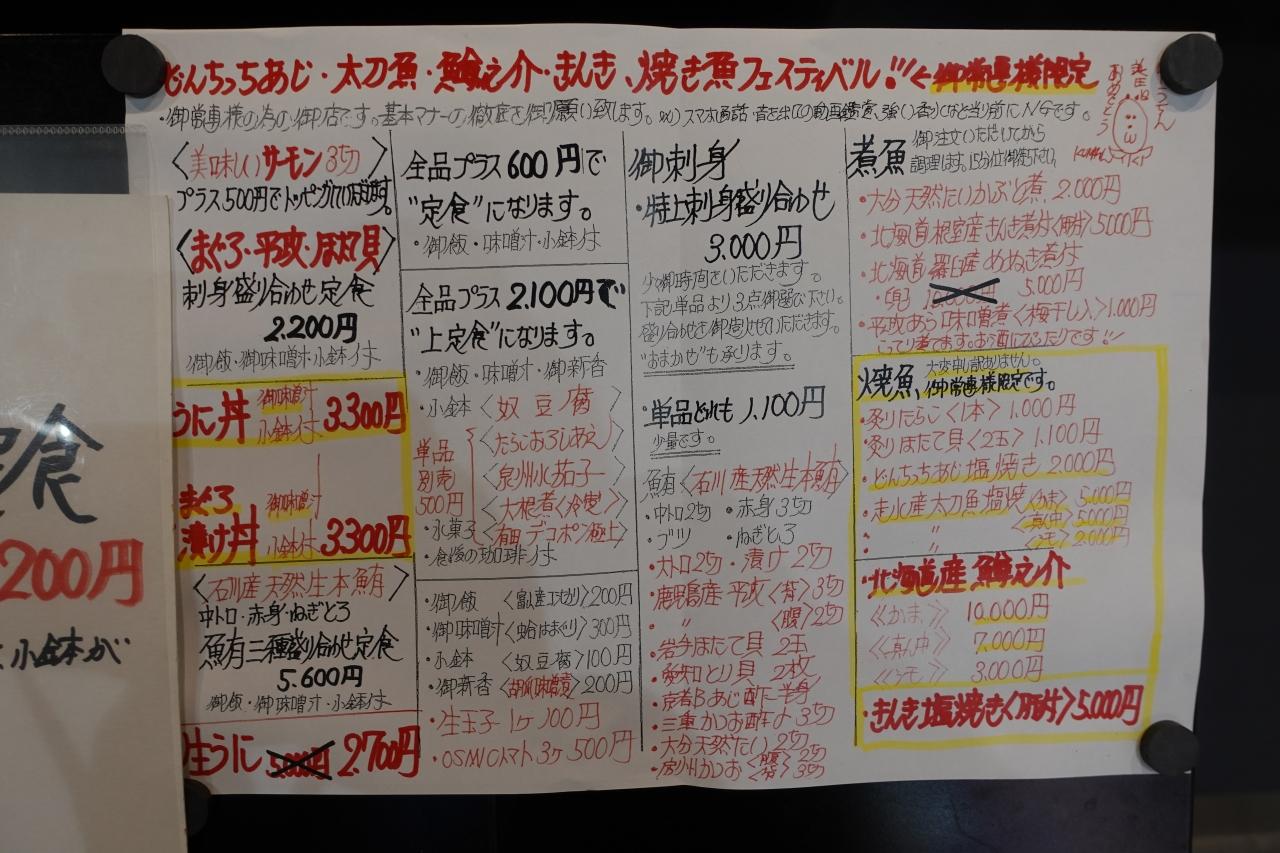 どんちっちあじ・太刀魚・鱒之介・きんき、焼き魚フェスティバル!!!←御常連様限定
・御常連様の為の御店です。基本マナーの徹底を御願い致します。※)スマホ通話・音を出しての動画鑑賞、強い香りなど当然にNGです。
おめでとう
〈美味しいサーモン3切〉
プラス500円でトッピングしていただけます。
〈まぐろ・平政・ほたて貝〉
刺身盛り合わせ定食
2.200円
御飯・御味噌汁・小鉢付
うに丼 御味噌汁 小鉢付 3.300円
まぐろ漬け丼 御味噌汁 小鉢付 3300円
〈石川産天然生本鮪〉
中トロ・赤身・ねぎとろ
鮪三種盛り合わせ定食
5.600円
御飯・御味噌汁・小鉢付
生うに 2.700円
全品プラス600円で
"定食"になります。
・御飯・味噌汁・小鉢付
全品プラス2.100円で
"上定食"になります。
・御飯・味噌汁・御新香
・小鉢〈奴豆腐〉
単品別売500円
〈たらこおろしあえ〉
〈泉州水茄子〉
〈大根煮〈冷製〉〉
・水菓子〈有田デコポン極上〉
・食後の珈琲付
・御飯〈富山産コシヒカリ〉200円
・御味噌汁〈蛤はまぐり〉300円
・小鉢〈奴豆腐〉100円
・御新香〈胡瓜味噌漬〉200円
・生玉子1ヶ100円
・OSMICトマト3ヶ500円
御刺身
・特上刺身盛り合わせ
3.000円
少々御時間をいただきます。
下記単品より3点御選び下さい。
盛り合わせを御造りさせていただきます。
"おまかせ"も承ります。
・単品どれも1.100円
少量です。
・鮪〈石川産天然生本鮪〉
・中トロ2切 ・赤身3切
・ブツ ・ねぎとろ
・大トロ2切 ・漬け2切
・鹿児島産・平政〈背〉3切
・〃〈腹〉2切
・岩手ほたて貝2玉
・愛知とり貝2枚
・京都Bあじ酢〆半身
・三重かつお酢〆3切
・大分天然たい2切
・房州かつお〈腹〉2切〈背〉3切
煮魚 御注文いただいてから
調理します。15分位御待ち下さい。
・大分天然たいかぶと煮 2.000円
・北海道根室産きんき煮付〈肝付〉5000円
・北海道羅臼産めぬき煮付
5.000円
・平政あら味噌煮〈梅干し入〉1.000円
こってり煮てます。お酒にぴったりです!!
大変申し訳ありません。
焼魚、御常連様限定です。
・炙りたらこ〈1本〉1.000円
・炙りほたて貝〈2玉〉1.100円
・どんちっちあじ塩焼き2.000円
・走水産太刀魚塩焼〈かま〉5.000円
・〃〈真ん中〉5000円
・〃〈シモ〉2.000円
・北海道産鱒之介
《かま》10.000円
《真ん中》7.000円
《シモ》3.000円
・きんき塩焼き〈肝付〉5.000円
定食
200円
小鉢が